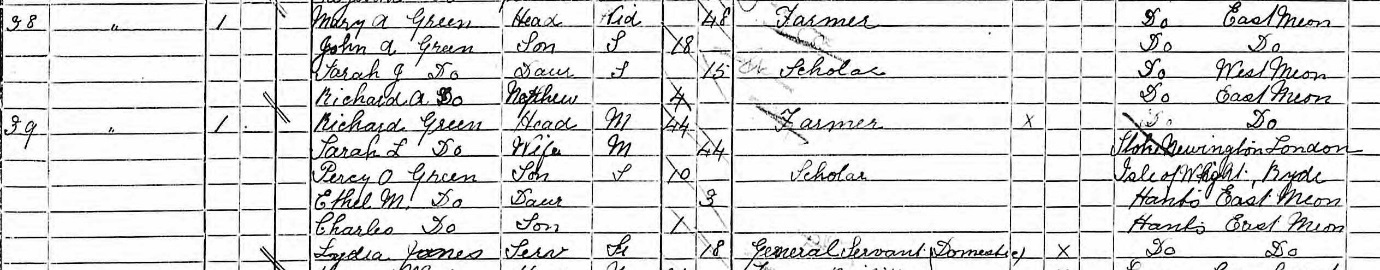 38 " 1 Mary A Green Head Wid 48 Farmer Do East Meon
John A Green Son S 18 Do Do
Sarah J Do Daur S 15 Scholar Do West Meon
Richard A Do Nephew 4 Do East Meon
39 " 1 Richard Green Head M 44 Farmer X Do Do
Sarah L Do Wife M 44 Stoke Newington London
Percy O Green Son S 10 Scholar Isle of Wight, Ryde
Ethel M. Do Daur 3 Hants East Meon
Charles Do Son 1 Hants East Meon
Lydia Jones Serv 18 General Servant (Domestic) X Do Do